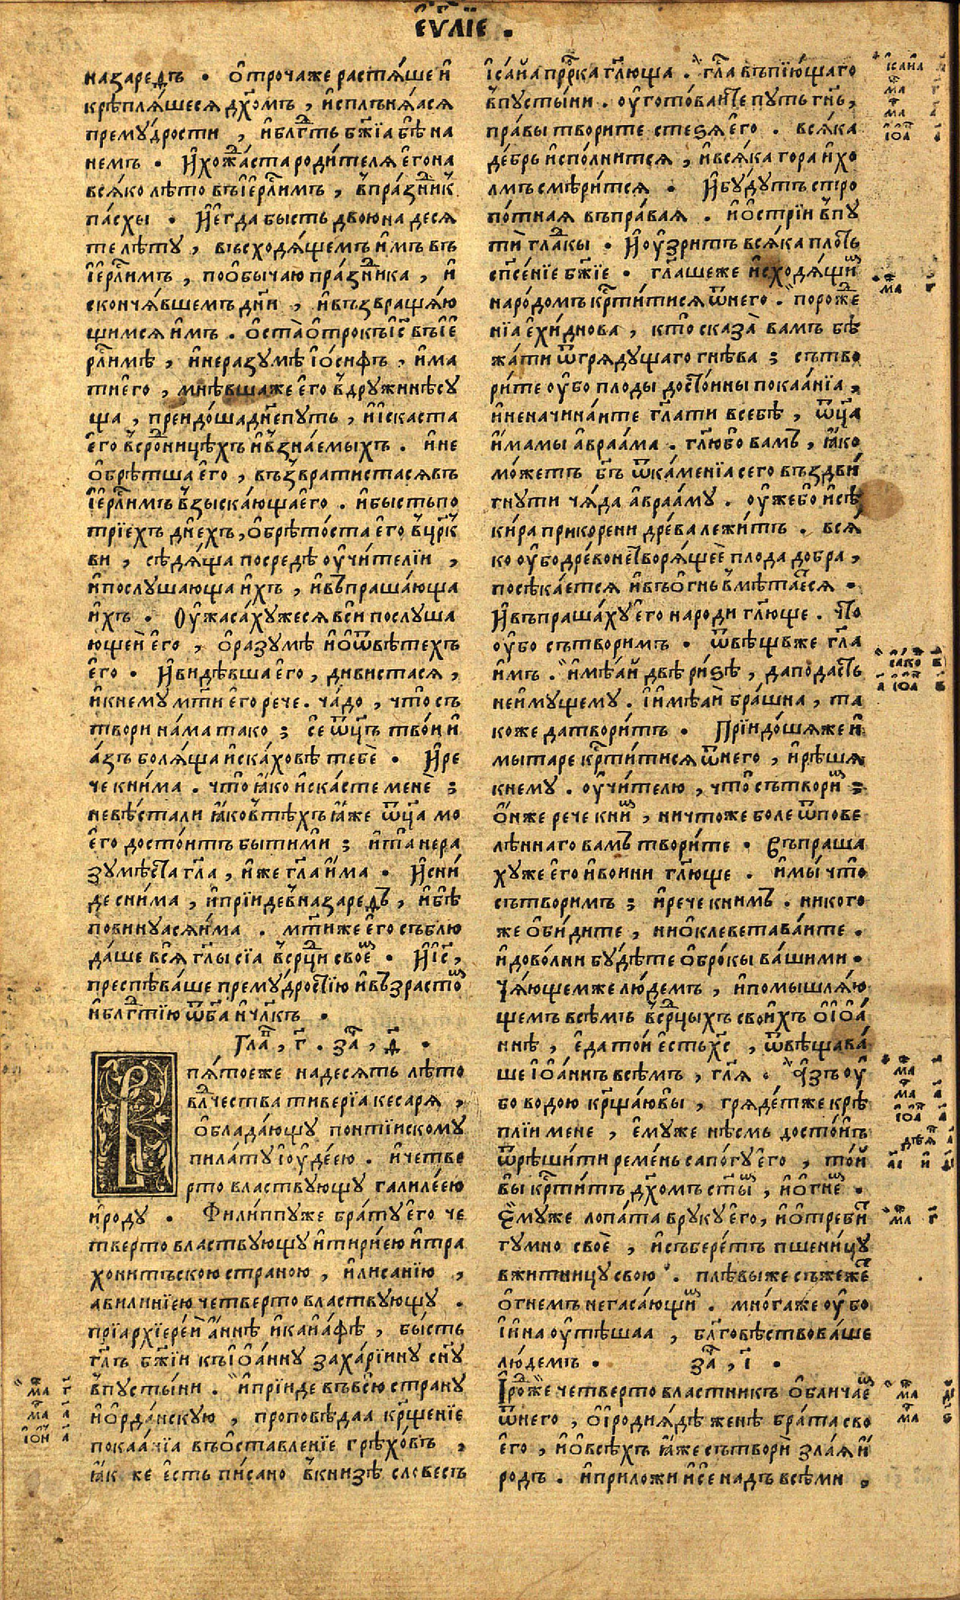 еѵ҃лїе .
назаредъ . ѻ҆трочаже растѧ́ше и҆
крѣплѧ́шесѧ дх҃омъ , и҆сплънѧ́ѧсѧ
премꙋ́дрости , и҆блгⷣть бж҃їа бѣ̀ на
немъ . И҆хожⷣа́ста роди́телѧ є҆гона
всѧ́ко лѣ́то въі҆ерⷭ҇лимъ , впра́знⷣикъ
па́схы . И҆є҆гда бысть двоюна десѧ
те лѣ́тꙋ , въсходѧ́щемъ и҆мъ въ
і҆ерⷭ҇лимъ , поѻ҆бычаю пра́знⷣика , и҆
сконча́вшемъ дн҃и , и҆възвраща́ю
щимсѧ и҆мъ . ѻ҆ста̀ ѻ҆трокъ і҆с҃ въі҆е
рⷭ҇лимѣ , и҆неразꙋмѣ̀ і҆ѻ́сифъ , и҆ма
ти є҆го , мнѣ́вшаже є҆го вдрꙋжинѣсꙋ
ща , преидо́ша дн҃е пꙋть , и҆и҆скаста
є҆го всро́дницѣхъ и҆взна́емыхъ . и҆не
ѻ҆брѣ́тша є҆го , възвратистасѧвъ
і҆ерⷭ҇лимъ взыска́юща є҆го . и҆бысть по
трїехъ дн҃ехъ, ѻ҆брѣто́ста є҆го вцр҃к
ви , сѣдѧ́ща посредѣ̀ ᲂу҆чи́телїи ,
и҆послꙋшающа и҆хъ , и҆въпраша́юща
и҆хъ . Оу҆жаса́хꙋжесѧ вси послꙋша
ющеи є҆го , ѻ҆ разꙋмѣ̀ и҆ѻ҆ѿвѣ́техъ
є҆го . И҆ви́дѣвша є҆го , дивистасѧ ,
и҆к немꙋ мт҃и є҆го рече . ча́до , что̀ съ
твори на́ма тако ; се ѿц҃ъ тво́и и҆
а́зъ болѧ́ща и҆ска́ховѣ тебѐ . И҆ре
че кни́ма . что̀ ꙗ҆́ко и҆ска́сте менѐ ;
невѣ́стали ꙗ҆́ко втѣ́хъ ꙗ҆́же ѿц҃а мо
є҆го досто́итъ быти ми ; и҆та̀ нера
зꙋмѣ́ста гл҃а , и҆же гл҃а и҆ма . И҆сни
де сни́ма , и҆прїиде вназаредъ , и҆бѣ̀
повинꙋѧсѧ и҆ма . мт҃и же є҆го съблю
да́ше всѧ̀ гл҃ы сїа всрⷣци своє́мъ . И҆і҆с҃,
преспѣва́ше премꙋ́дростїю и҆въ́зрасто
и҆блгⷣтїю ѿбг҃а и҆ чл҃къ .
Глаⷡ҇ , г҃ . за҃ , д҃ .
Впѧ́тоеже надесѧть лѣ́то
влⷣчества тиверїа кесарѧ ,
ѻ҆блада́ющꙋ понті́искомꙋ
пила́тꙋ і҆ꙋдеею . и҆четве
рто властвꙋющꙋ галиле́ею
и҆родꙋ . Фили́ппꙋже бра́тꙋ є҆го че
тверто властвꙋющꙋ и҆тирие́ю и҆тра
хони́тъскою страною , и҆лисанїю ,
авилині́ею четверто властвꙋющꙋ .
прїархїере́и а҆́ннѣ и҆каїа́фѣ , бы́сть
гл҃ъ бж҃їи къі҆ѻ҆а́ннꙋ заха́рїинꙋ сн҃ꙋ
впꙋсты́ни . и҆прїиде въвсю странꙋ
и҆ѻ҆рда́нскꙋю , проповѣдаа крщ҃енїе
покаанїа въѻ҆ставленїе грѣхо́въ ,
ꙗ҆́к же є҆сть пи́сано вкнизѣ словесъ
і҆са́йа прⷪ҇рка гл҃юща . гл҃а въпїю́щаго
впꙋсты́ни . ᲂу҆гото́ваите пꙋть гн҃ь ,
пра́вы твори́те сте́ѕѧ є҆го . всѧка
де́брь и҆спо́лнитсѧ , и҆всѧ́ка гора и҆хо
лмъ смѣри́тсѧ . И҆бꙋ́дꙋтъ стро
по́тнаѧ въпра́ваѧ . и҆ѻ҆стрїи впꙋ
ти̑ гла́ⷣкы . И҆ᲂу҆́зритъ всѧ́ка пло́ть
спⷭ҇е́нїе бж҃їе . гл҃ашеже и҆сходѧ́щимъ
наро́домъ крⷭ҇ти́тисѧ ѿнего . порожⷣе
нїа є҆хи́днова , кто̀ сказа̀ ва́мъ бѣ
жа́ти ѿгрѧдꙋщаго гнѣ́ва ; сътво
ри́те ᲂу҆бо плоды̀ досто́ины покаа́нїа ,
и҆неначина́ите гл҃ати всебѣ̀ , ѿц҃а
и҆мамы а҆враама . гл҃юбо ва́мъ , ꙗ҆́ко
мо́жетъ бг҃ъ ѿка́менїа сего въздви́
гнꙋти ча́да а҆враа́мꙋ . ᲂу҆же бо и҆сѣ
ки́ра прикорени дре́ва лежи́тъ . всѧ́
ко ᲂу҆бодре́во не творѧ́щее плода добра ,
посѣка́етсѧ и҆въѻ҆гнь вмѣта́етсѧ .
И҆въпраша́хꙋ є҆го народи гл҃юще . что
ᲂу҆бо сътвори́мъ . ѿвѣ́щавже гл҃а
и҆мъ . и҆мѣ́ай двѣ̀ ри́ѕѣ , даподасть
неимꙋ́щемꙋ . І҆и҆мѣ́ай бра́шна , та
коже да твори́тъ . Прїидо́шѧже и҆
мытаре крⷭ҇ти́тисѧ ѿнего , и҆рѣ́шѧ
кнемꙋ . ᲂу҆чи́телю , что̀ сътвори́мъ ;
ѻ҆́нже рече кни́мъ , ничтоже боле ѿпове
лѣ́ннаго ва́мъ твори́те . Въпраша
хꙋже є҆го и҆вои́ни гл҃юще . и҆мы что
сътвори́мъ ; и҆рече кни́мъ . никого
же ѻ҆би́дите , ниѻ҆клеветава́ите .
и҆дово́лни бꙋ́дѣте ѻ҆бро́кы ва́шими .
Ча́ющемже лю́демъ , и҆помышлѧ́ю
щемъ всѣ́мъ всрⷣцыхъ свои́хъ ѻ҆і҆ѻ҆а́
ннѣ , є҆да то́и є҆сть хс҃ , ѿвѣщава́
ше і҆ѻ҆а́ннъ всѣ́мъ , гл҃ѧ . А҆зъ ᲂу҆
бо водою крща́ювы , грѧде́тже крѣ́
плїи мене , є҆мꙋже нѣ́смь досто́инъ
ѿрѣши́ти реме́нь сапо́гꙋ є҆го , то́й
вы крⷭ҇ти́тъ дх҃омъ ст҃ымъ , и҆ѻ҆гне́мъ .
Є҆мꙋже лопа́та врꙋкꙋ є҆го, и҆ѻ҆треби́тъ
гꙋмно своѐ , и҆събере́тъ пшени́цꙋ
вжи́тницꙋ свою . плѣвыже съжеже́тъ
ѻ҆гнемъ негаса́ющимъ . мно́гаже ᲂу҆бо
и҆и҆на ᲂу҆тѣшаа , блг҃овѣствова́ше
лю́демъ . за҃ , і҃ .
І҆́рѡдже четверто властникъ ѻ҆блича́емъ
ѿнего , ѻ҆і҆родїѧ́дѣ женѣ̀ бра́та сво
є҆го , и҆ѻ҆всѣ́хъ ꙗ҆́же сътворѝ зла́ѧ и҆
родъ . и҆приложи и҆се надъ всѣ́ми ,